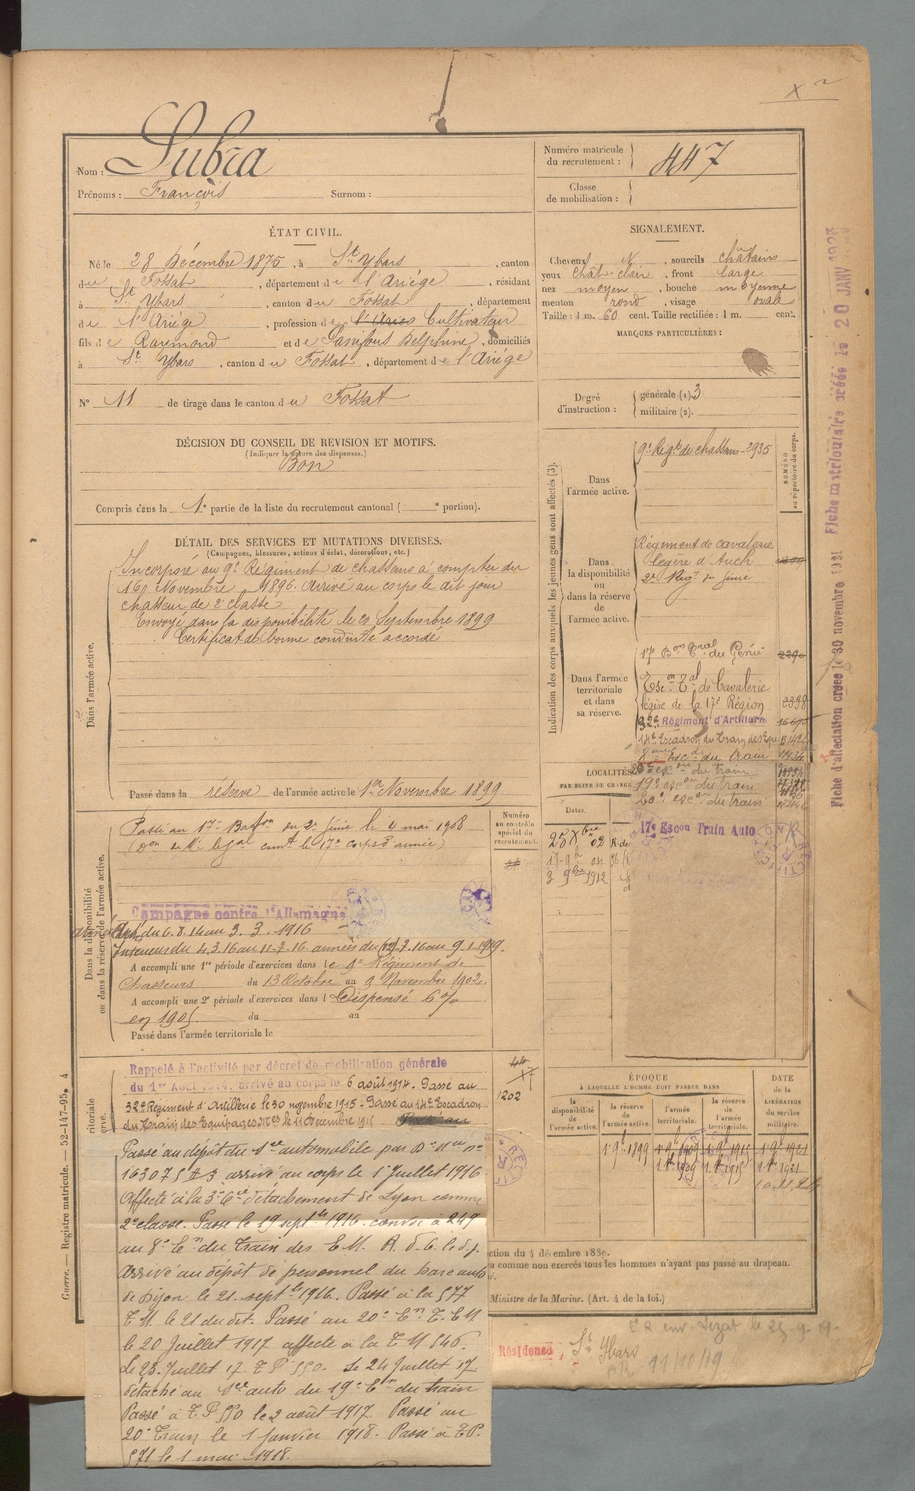 Nom : Subra
Prénoms : François Surnom :
Numéro matricule du recrutement : 447
Classe de mobilisation :
ÉTAT CIVIL.
Né le 28 Décembre 1875, à St Ybars, canton
du Fossat, département de l'Ariège, résidant
à St Ybars, canton du Fossat, département
de l'Ariège, profession de Cultivateur
fils de Raymond et de Delphine, domiciliés
à St Ybars, canton du Fossat, département de l'Ariège
N° 11 de tirage dans le canton du Fossat
SIGNALEMENT.
Cheveux N, sourcils châtains
yeux chât. clair, front large
nez moyen, bouche moyenne
menton rond, visage ovale
Taille : 1 m. 60 cent. Taille rectifiée : 1 m. cent.
MARQUES PARTICULIÈRES :
Degré d'instruction : générale (1). 3
militaire (2).
DÉCISION DU CONSEIL DE REVISION ET MOTIFS.
(Indiquer la nature des dispenses.)
Bon
Compris dans la 1e partie de la liste du recrutement cantonal ( e portion).
DÉTAIL DES SERVICES ET MUTATIONS DIVERSES.
(Campagnes, blessures, actions d'éclat, décorations, etc.)
Dans l'armée active.
Incorporé au 9e Régiment de chasseurs à compter du
16 Novembre 1896. Arrivé au corps le dit jour
chasseur de 2e classe
Envoyé dans la disponibilité le 20 Septembre 1899
Certificat de bonne conduite accordé
Passé dans la réserve de l'armée active le 1er Novembre 1899
Indication des corps auxquels les jeunes gens sont affectés (3).
NUMÉRO au répertoire du corps.
Dans l'armée active.
9e Régt de chasseurs - 2935
Dans la disponibilité ou dans la réserve de l'armée active.
Régiment de cavalerie
légère d'Auch
2e Régt du Génie
Dans l'armée territoriale et dans sa réserve.
17e Bon Tal du Génie
Esc on Tal de Cavalerie
légère de la 17e Région 2398
32e Régiment d'Artillerie
14e Escadron du Train des Equ
8e Escon du train
20e escon du train
19e escon du train
20e escon du train
17e Escon Train Auto
LOCALITÉS
PAR SUITE DE CHANGE
Dates.
3 9bre 1912
Dans la disponibilité ou dans la réserve de l'armée active.
Numéro au contrôle spécial du recrutement.
Passé au 1er Baton du 2e Génie le 4 mai 1908
Campagne contre l'Allemagne
du 6.8.14 au 3.3.1916
Intérieur du 4.3.16 au 11.7.16 armées du 12.7.16 au 9.1.1919.
A accompli une 1re période d'exercices dans le Régiment de
Chasseurs du 13 Octobre au 9 Novembre 1902.
A accompli une 2e période d'exercices dans l Dispensé 6%
en 1905 du au
Passé dans l'armée territoriale le
Rappelé à l'activité par décret de mobilisation générale
du 1er Août 1914, arrivé au corps le 6 août 1914. Passé au
32e Régiment d'Artillerie le 30 novembre 1915 - Passé au 14e Escadron
du Train des Equipages Mres le 11 Décembre 1915
1202
Passé au dépôt du Sce automobile par Dn Mlle n°
16307 5/3 arrivé au corps le 1 Juillet 1916
Affecté à la 3e Cie détachement de Lyon comme
2e classe. Passé le 19 septbre 1916 convoi à 249
au 8e En du Train des E.M. R.d.G. le d.j.
Arrivé au dépôt de personnel du parc auto
de Dijon le 21 septbre 1916. Passé à la 577
T.M. le 21 du dit. Passé au 20e En T.E.M
le 20 Juillet 1917 affecté à la T M 546.
Le 23 Juillet 17 T P 550. Le 24 Juillet 17
détaché au Sce auto du 19e En du train
Passé à T P 550 le 2 août 1917 Passé au
20e Train le 1 janvier 1918. Passé à T.P.
571 le 1 mai 1918.
ÉPOQUE
À LAQUELLE L'HOMME DOIT PASSER DANS
la disponibilité de l'armée active.
la réserve de l'armée active.
l'armée territoriale.
la réserve de l'armée territoriale.
DATE de la LIBÉRATION du service militaire.
1er 9bre 1899
ction du 4 décembre 1889.
a comme non exercés tous les hommes n'ayant pas passé au drapeau.
Ministre de la Marine. (Art. 4 de la loi.)
Résidence, St Ybars
11/10/19
Guerre. — Registre matricule. — 52-147-95. 4
Fiche d'affectation créée le 30 novembre 1921 Fiche matriculaire créée le 20 JANV